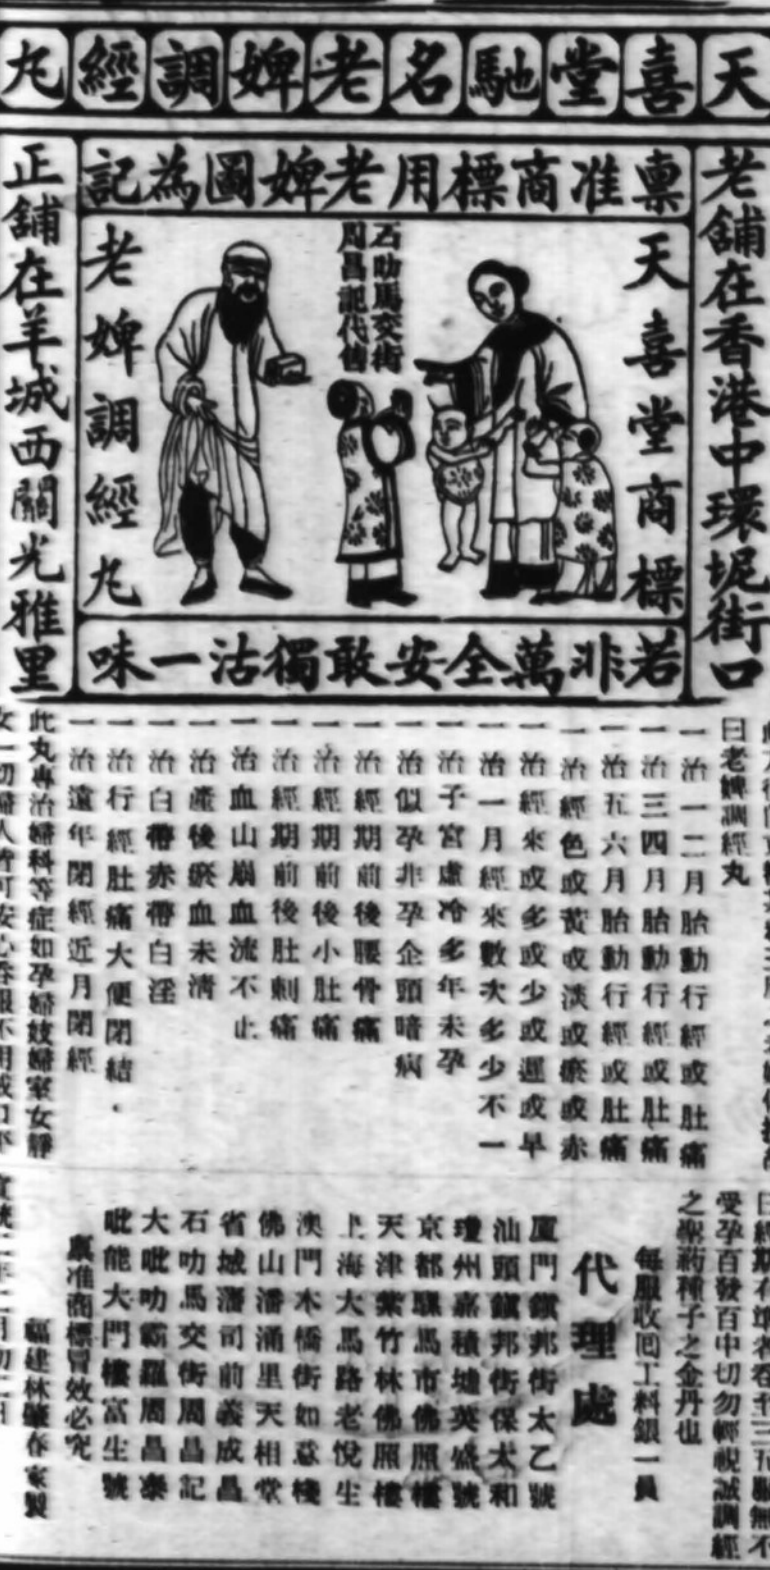 天喜堂馳名老婢調經丸
老舖在香港中環坭街口
稟准商標用老婢圖為記
天喜堂商標
石叻馬交街
周昌記代售
老婢調經丸
若非萬全安敢獨沽一味
正舖在羊城西關光雅里
曰老婢調經丸
一治一二月胎動行經或肚痛
一治三四月胎動行經或肚痛
一治五六月胎動行經或肚痛
一治經色或黃或淡或瘀或赤
一治經來或多或少或遲或早
一治一月經來數次多少不一
一治子宮虛冷多年未孕
一治似孕非孕企頭暗病
一治經期前後腰骨痛
一治經期前後小肚痛
一治經期前後肚刺痛
一治血山崩血流不止
一治產後瘀血未清
一治白帶赤帶白淫
一治行經肚痛大便閉結
一治遠年閉經近月閉經
此丸專治婦科等症如孕婦妓婦室女靜
女一切婦人皆可安心吞服不用戒口
受孕百發百中切勿輕視誠調經
之聖葯種子之金丹也
每服收回工料銀一員
代理處
廈門鎮邦街太乙號
汕頭鎮邦街保太和
瓊州嘉積墟英盛號
京都騾馬市佛照樓
天津紫竹林佛照樓
上海大馬路老悅生
澳門木橋街如意棧
佛山潘涌里天相堂
省城藩司前義成昌
石叻馬交街周昌記
大吡叻霸羅周昌泰
吡能大門樓富生號
稟准商標冒效必究
福建林肇春家製